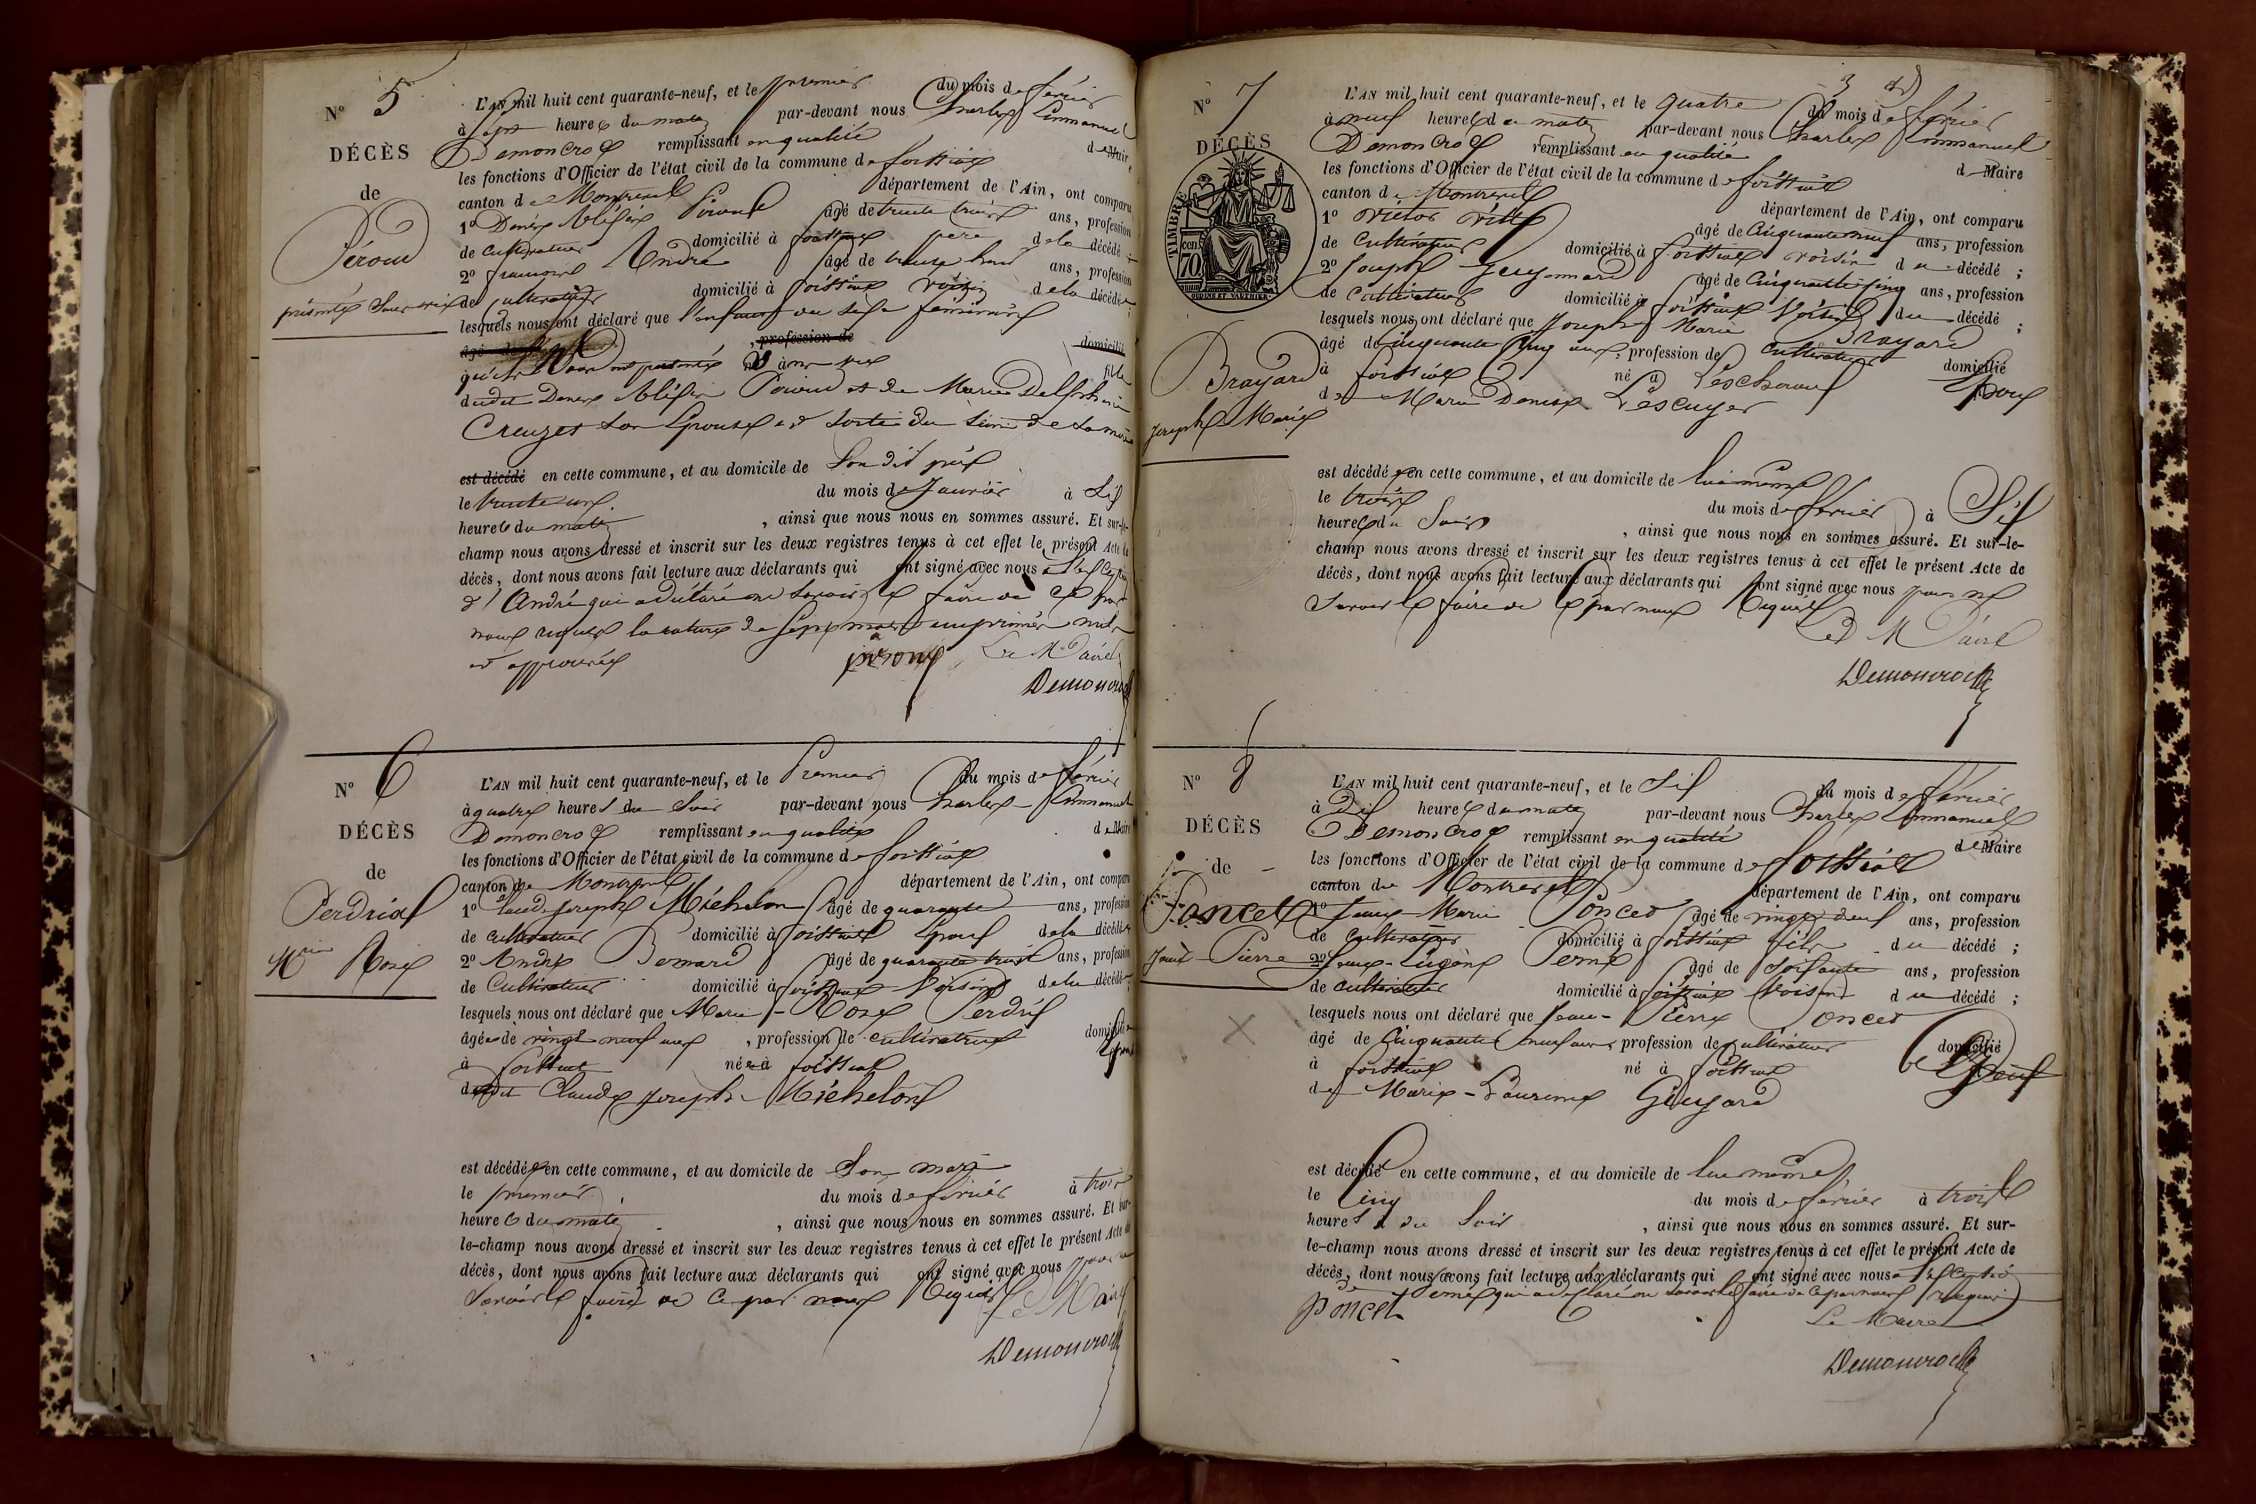 N° 5
DÉCÈS
de
Péroud
présenté Sans vie
L'AN mil huit cent quarante-neuf, et le premier du mois de février
à Sept heures du matin par-devant nous Charles Emmanuel
Demoncroz remplissant en qualité de Maire
les fonctions d'Officier de l'état civil de la commune de foissiat
canton de Montrevel département de l'Ain, ont comparu
1° Denis Péroud âgé de trente trois ans, profession
de cultivateur domicilié à foissiat père de la décédée
2° françois André âgé de trente huit ans, profession
de cultivateur domicilié à foissiat voisin de la décédée
lesquels nous ont déclaré que l'enfant du sexe féminin
âgé de , profession de domicilié
qu'ils nous ont présenté né sans vie fille
dudit Denis Péroud et de Marie Delphine
Creuzet Son Epouse est sortie du sein de sa mère
est décédé en cette commune, et au domicile de Son dit père
le trente un du mois de Janvier à Six
heures du matin , ainsi que nous nous en sommes assuré. Et sur-le-
champ nous avons dressé et inscrit sur les deux registres tenus à cet effet le présent Acte de
décès, dont nous avons fait lecture aux déclarants qui ont signé avec nous
d'André qui a déclaré ne Savoir le faire de ce par
nous requis la rature de Sept mots imprimés nuls
est approuvée
péroud Le Maire
Demoncroz
N° 6
DÉCÈS
de
Perdrix
Mrie Rose
L'AN mil huit cent quarante-neuf, et le Premier du mois de février
à quatre heures du Soir par-devant nous Charles Emmanuel
Demoncroz remplissant en qualité de Maire
les fonctions d'Officier de l'état civil de la commune de foissiat
canton de Montrevel département de l'Ain, ont comparu
1° Claude Joseph Michelon âgé de quarante ans, profession
de cultivateur domicilié à foissiat Epoux de la décédée
2° André Bernard âgé de quarante trois ans, profession
de Cultivateur domicilié à foissiat Voisin de la décédée
lesquels nous ont déclaré que Marie - Rose Perdrix
âgée de vingt neuf ans , profession de cultivatrice domiciliée
à foissiat née à foissiat Epouse
dudit Claude Joseph Michelon
est décédée en cette commune, et au domicile de Son mari
le premier du mois de février à trois
heures du matin , ainsi que nous nous en sommes assuré. Et sur-
le-champ nous avons dressé et inscrit sur les deux registres tenus à cet effet le présent Acte de
décès, dont nous avons fait lecture aux déclarants qui ont signé avec nous pour ne
Savoir le faire de ce par nous Requis Le Maire
Demoncroz
3
N° 7
DÉCÈS
TIMBRE
cen. 70
Brayard
Joseph Marie
L'AN mil huit cent quarante-neuf, et le quatre du mois de février
à neuf heures du matin par-devant nous Charles Emmanuel
Demoncroz remplissant en qualité de Maire
les fonctions d'Officier de l'état civil de la commune de foissiat
canton de Montrevel département de l'Ain, ont comparu
1° Victor âgé de Cinquante neuf ans, profession
de Cultivateur domicilié à foissiat voisin du décédé ;
2° Joseph Guyonnard âgé de Cinquante cinq ans, profession
de Cultivateur domicilié à foissiat Voisin du décédé ;
lesquels nous ont déclaré que Joseph Marie Brayard
âgé de Cinquante Cinq ans , profession de Cultivateur domicilié
à foissiat né à L'escheroux Epoux
de Marie Denise Lescuyer
est décédé en cette commune, et au domicile de lui même
le trois du mois de février à Six
heures du Soir , ainsi que nous nous en sommes assuré. Et sur-le-
champ nous avons dressé et inscrit sur les deux registres tenus à cet effet le présent Acte de
décès, dont nous avons fait lecture aux déclarants qui ont signé avec nous pour ne
Savoir le faire de ce par nous Requis
Le Maire
Demoncroz
N° 8
DÉCÈS
de
Poncet
Jean Pierre
L'AN mil huit cent quarante-neuf, et le Six du mois de février
à Dix heures du matin par-devant nous Charles Emmanuel
Demoncroz remplissant en qualité de Maire
les fonctions d'Officier de l'état civil de la commune de foissiat
canton de Montrevel département de l'Ain, ont comparu
1° Jean-Marie Poncet âgé de vingt neuf ans, profession
de Cultivateur domicilié à foissiat fils du décédé ;
2° Jean-Eugène âgé de Soixante ans, profession
de cultivateur domicilié à foissiat Voisin du décédé ;
lesquels nous ont déclaré que Jean-Pierre Poncet
âgé de Cinquante neuf ans profession de Cultivateur domicilié
à foissiat né à foissiat Veuf
de Marie-Laurence Guyard
est décédé en cette commune, et au domicile de lui même
le Cinq du mois de février à trois
heures du Soir , ainsi que nous nous en sommes assuré. Et sur-
le-champ nous avons dressé et inscrit sur les deux registres tenus à cet effet le présent Acte de
décès, dont nous avons fait lecture aux déclarants qui ont signé avec nous
qui a déclaré ne Savoir le faire de ce par nous requis
Poncet Le Maire
Demoncroz